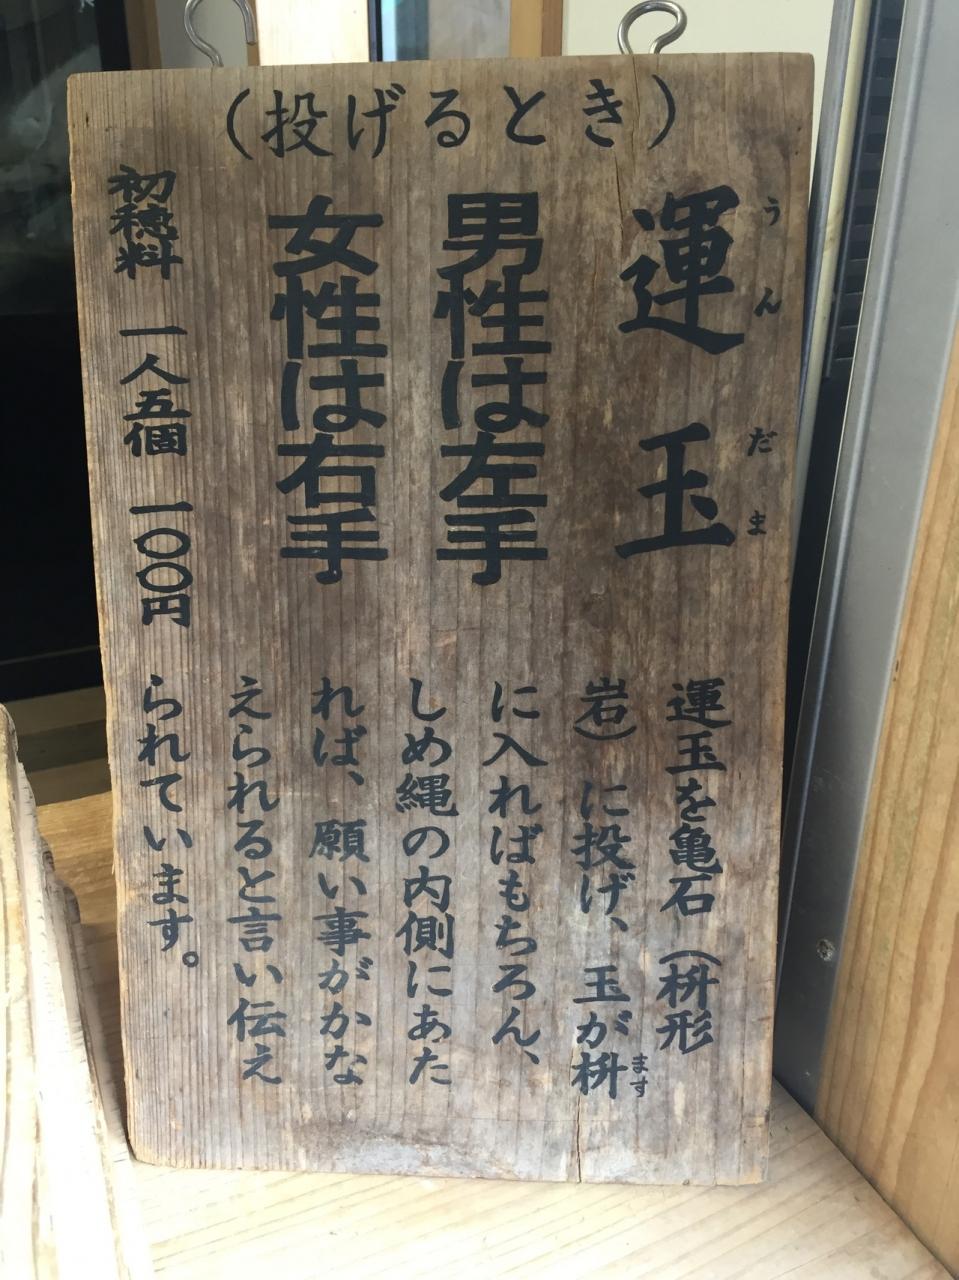 （投げるとき）
運玉
うんだま
男性は左手
女性は右手
初穂料 一人五個 一〇〇円
運玉を亀石（枡形
岩）に投げ、玉が枡
ます
に入ればもちろん、
しめ縄の内側にあた
れば、願い事がかな
えられると言い伝え
られています。